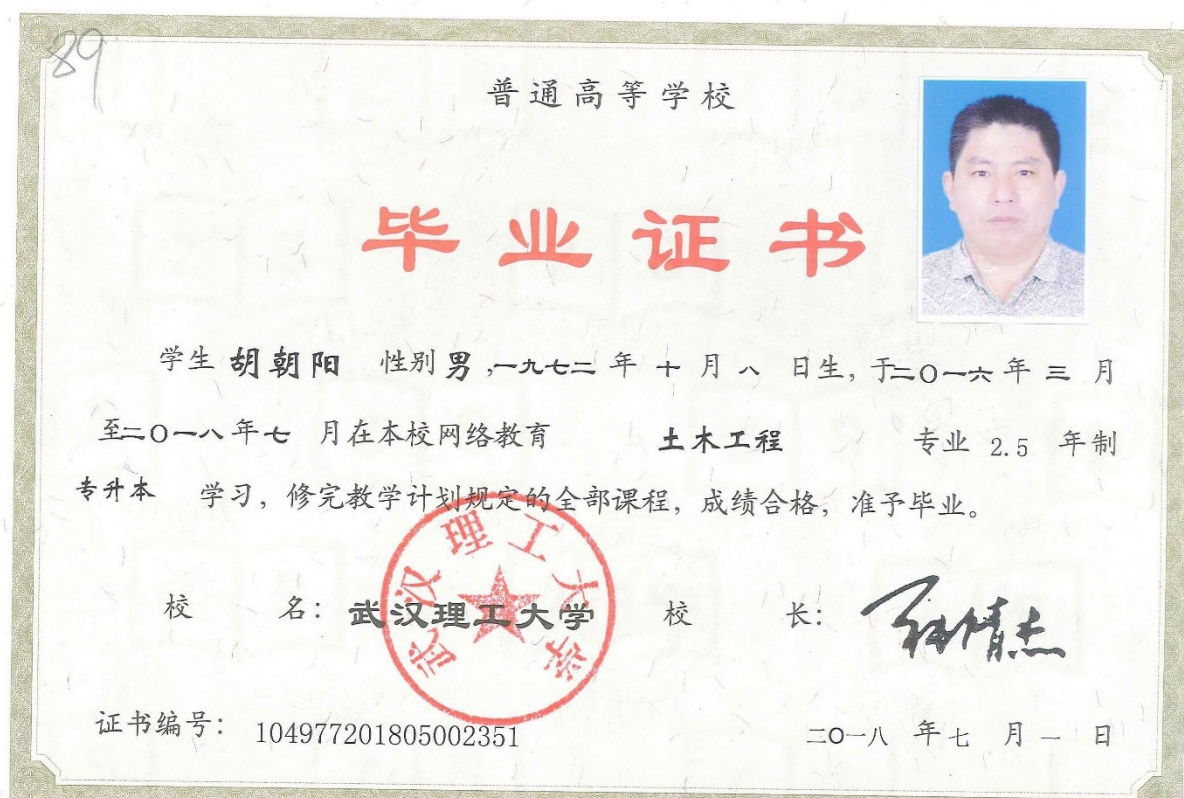 89
普通高等学校
毕业证书
学生 胡朝阳 性别 男 ,一九七二 年 十 月 八 日生, 于二O一六 年 三 月
至二O一八 年 七 月在本校网络教育 土木工程 专业 2.5 年制
专升本 学习, 修完教学计划规定的全部课程, 成绩合格, 准予毕业。
武汉理工大学
校 名: 武汉理工大学 校 长:
证书编号: 104977201805002351 二O一八 年 七 月 一 日